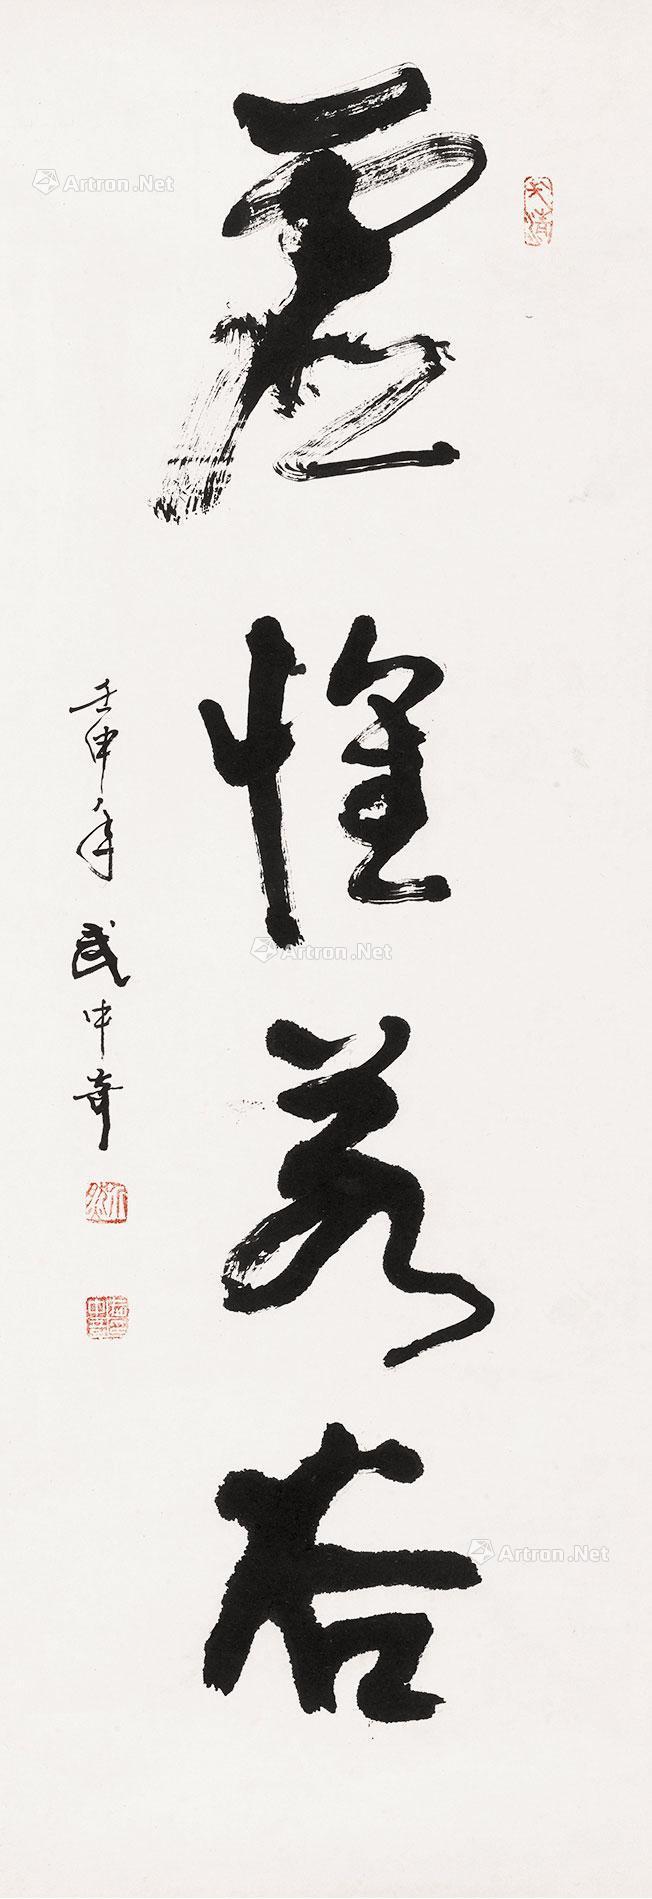 虚怀若谷
壬申年 武中奇
Artron.Net
Artron.Net
Artron.Net